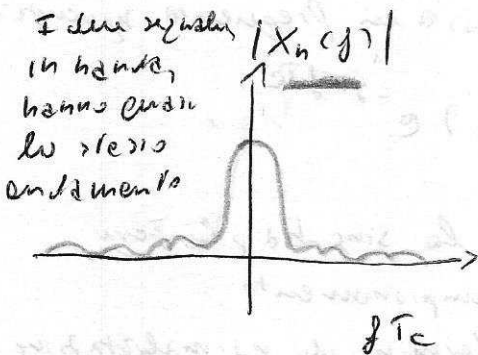 I due segnali,
in banda,
hanno quasi
lo stesso
andamento
|Xₙ(f)|
f Tc